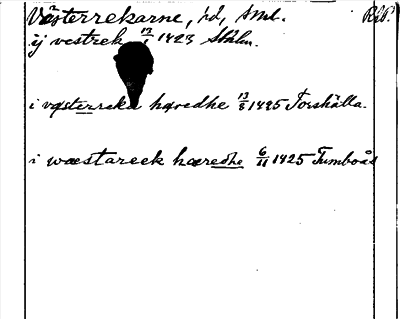 Västerrekarne, hd, Sml. RLP.
ij vestrek 12/1 1423 Sthlm.
i vesterreka hæredhe 13/8 1425 Torshälla.
i wæstareek hæredhe 6/11 1425 Tumboås